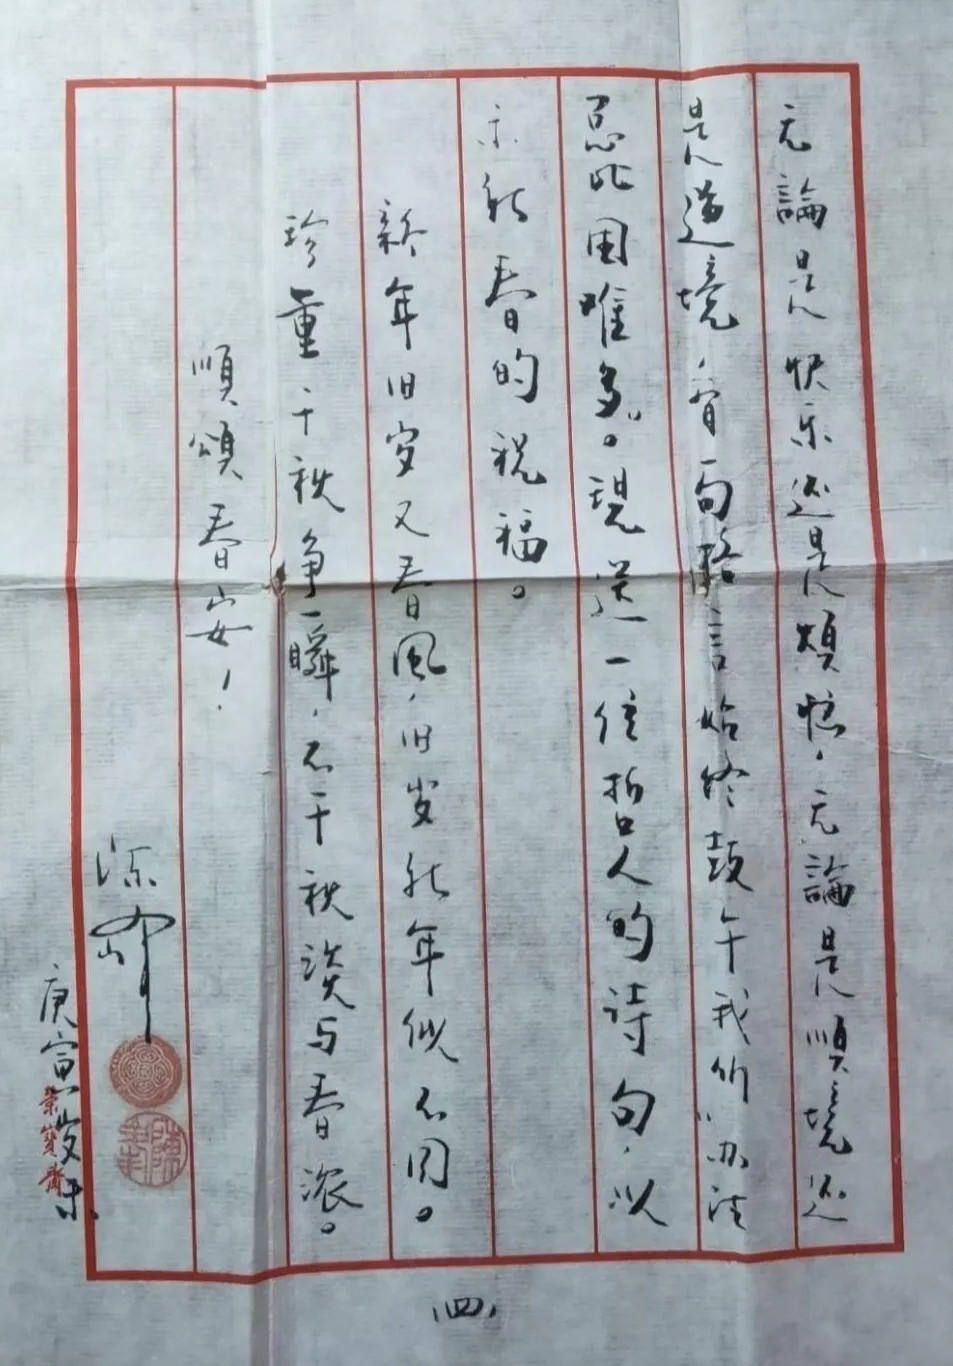 无論是快乐还是煩惱，无論是順境还
是逆境，有一句格言始终鼓午我们“办法
总比困难多”。現送一位哲人的诗句，以
示新春的祝福。
新年旧岁又春風，旧岁新年似不同。
珍重千秋争一瞬，不干秋淡与春濃。
順頌春安！
庚寅岁末
榮寳齋
（四）